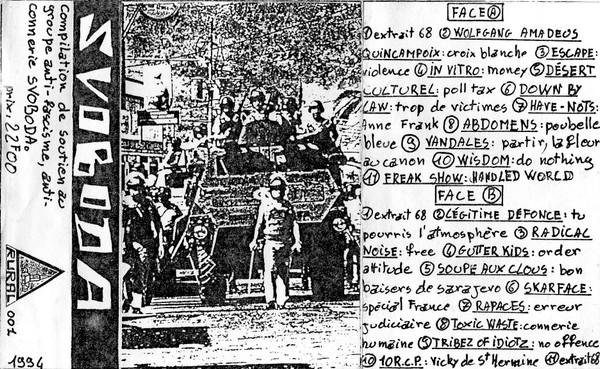 Compilation de soutien au
groupe anti-fascisme, anti-
connerie SVOBODA
prix: 22F00
RURAL 001
1994
SVOBODA
FACE A
① extrait 68 ② WOLFGANG AMADEUS
QUINCAMPOIX: croix blanche ③ ESCAPE:
violence ④ IN VITRO: money ⑤ DÉSERT
CULTUREL: poll tax ⑥ DOWN BY
LAW: trop de victimes ⑦ HAVE-NOTS:
Anne Frank ⑧ ABDOMENS: poubelle
bleue ⑨ VANDALES: partir, la fleur
au canon ⑩ WISDOM: do nothing
⑪ FREAK SHOW: HANDLED WORLD
FACE B
① extrait 68 ② LÉGITIME DÉFONCE: tu
pourris l'atmosphère ③ RADICAL
NOISE: free ④ GUTTER KIDS: order
attitude ⑤ SOUPE AUX CLOUS: bon
baisers de sarajevo ⑥ SKARFACE:
spécial France ⑦ RAPACES: erreur
judiciaire ⑧ TOXIC WASTE: connerie
humaine ⑨ TRIBEZ OF IDIOTZ: no offence
⑩ 10R.C.P.: Vicky de St Hermine ⑪ extrait 68